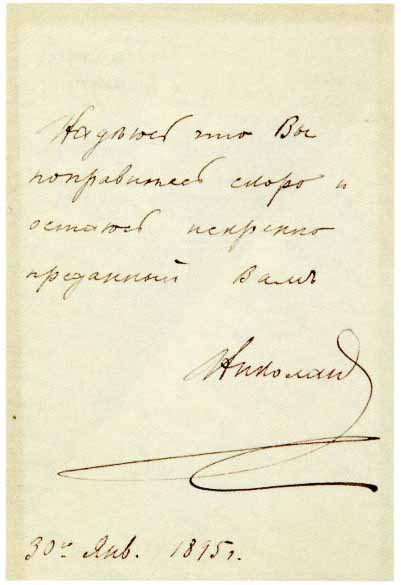 Надѣюсь что Вы
поправитесь скоро и
остаюсь искренно
преданный Вамъ
Николай
30го Янв. 1895 г.